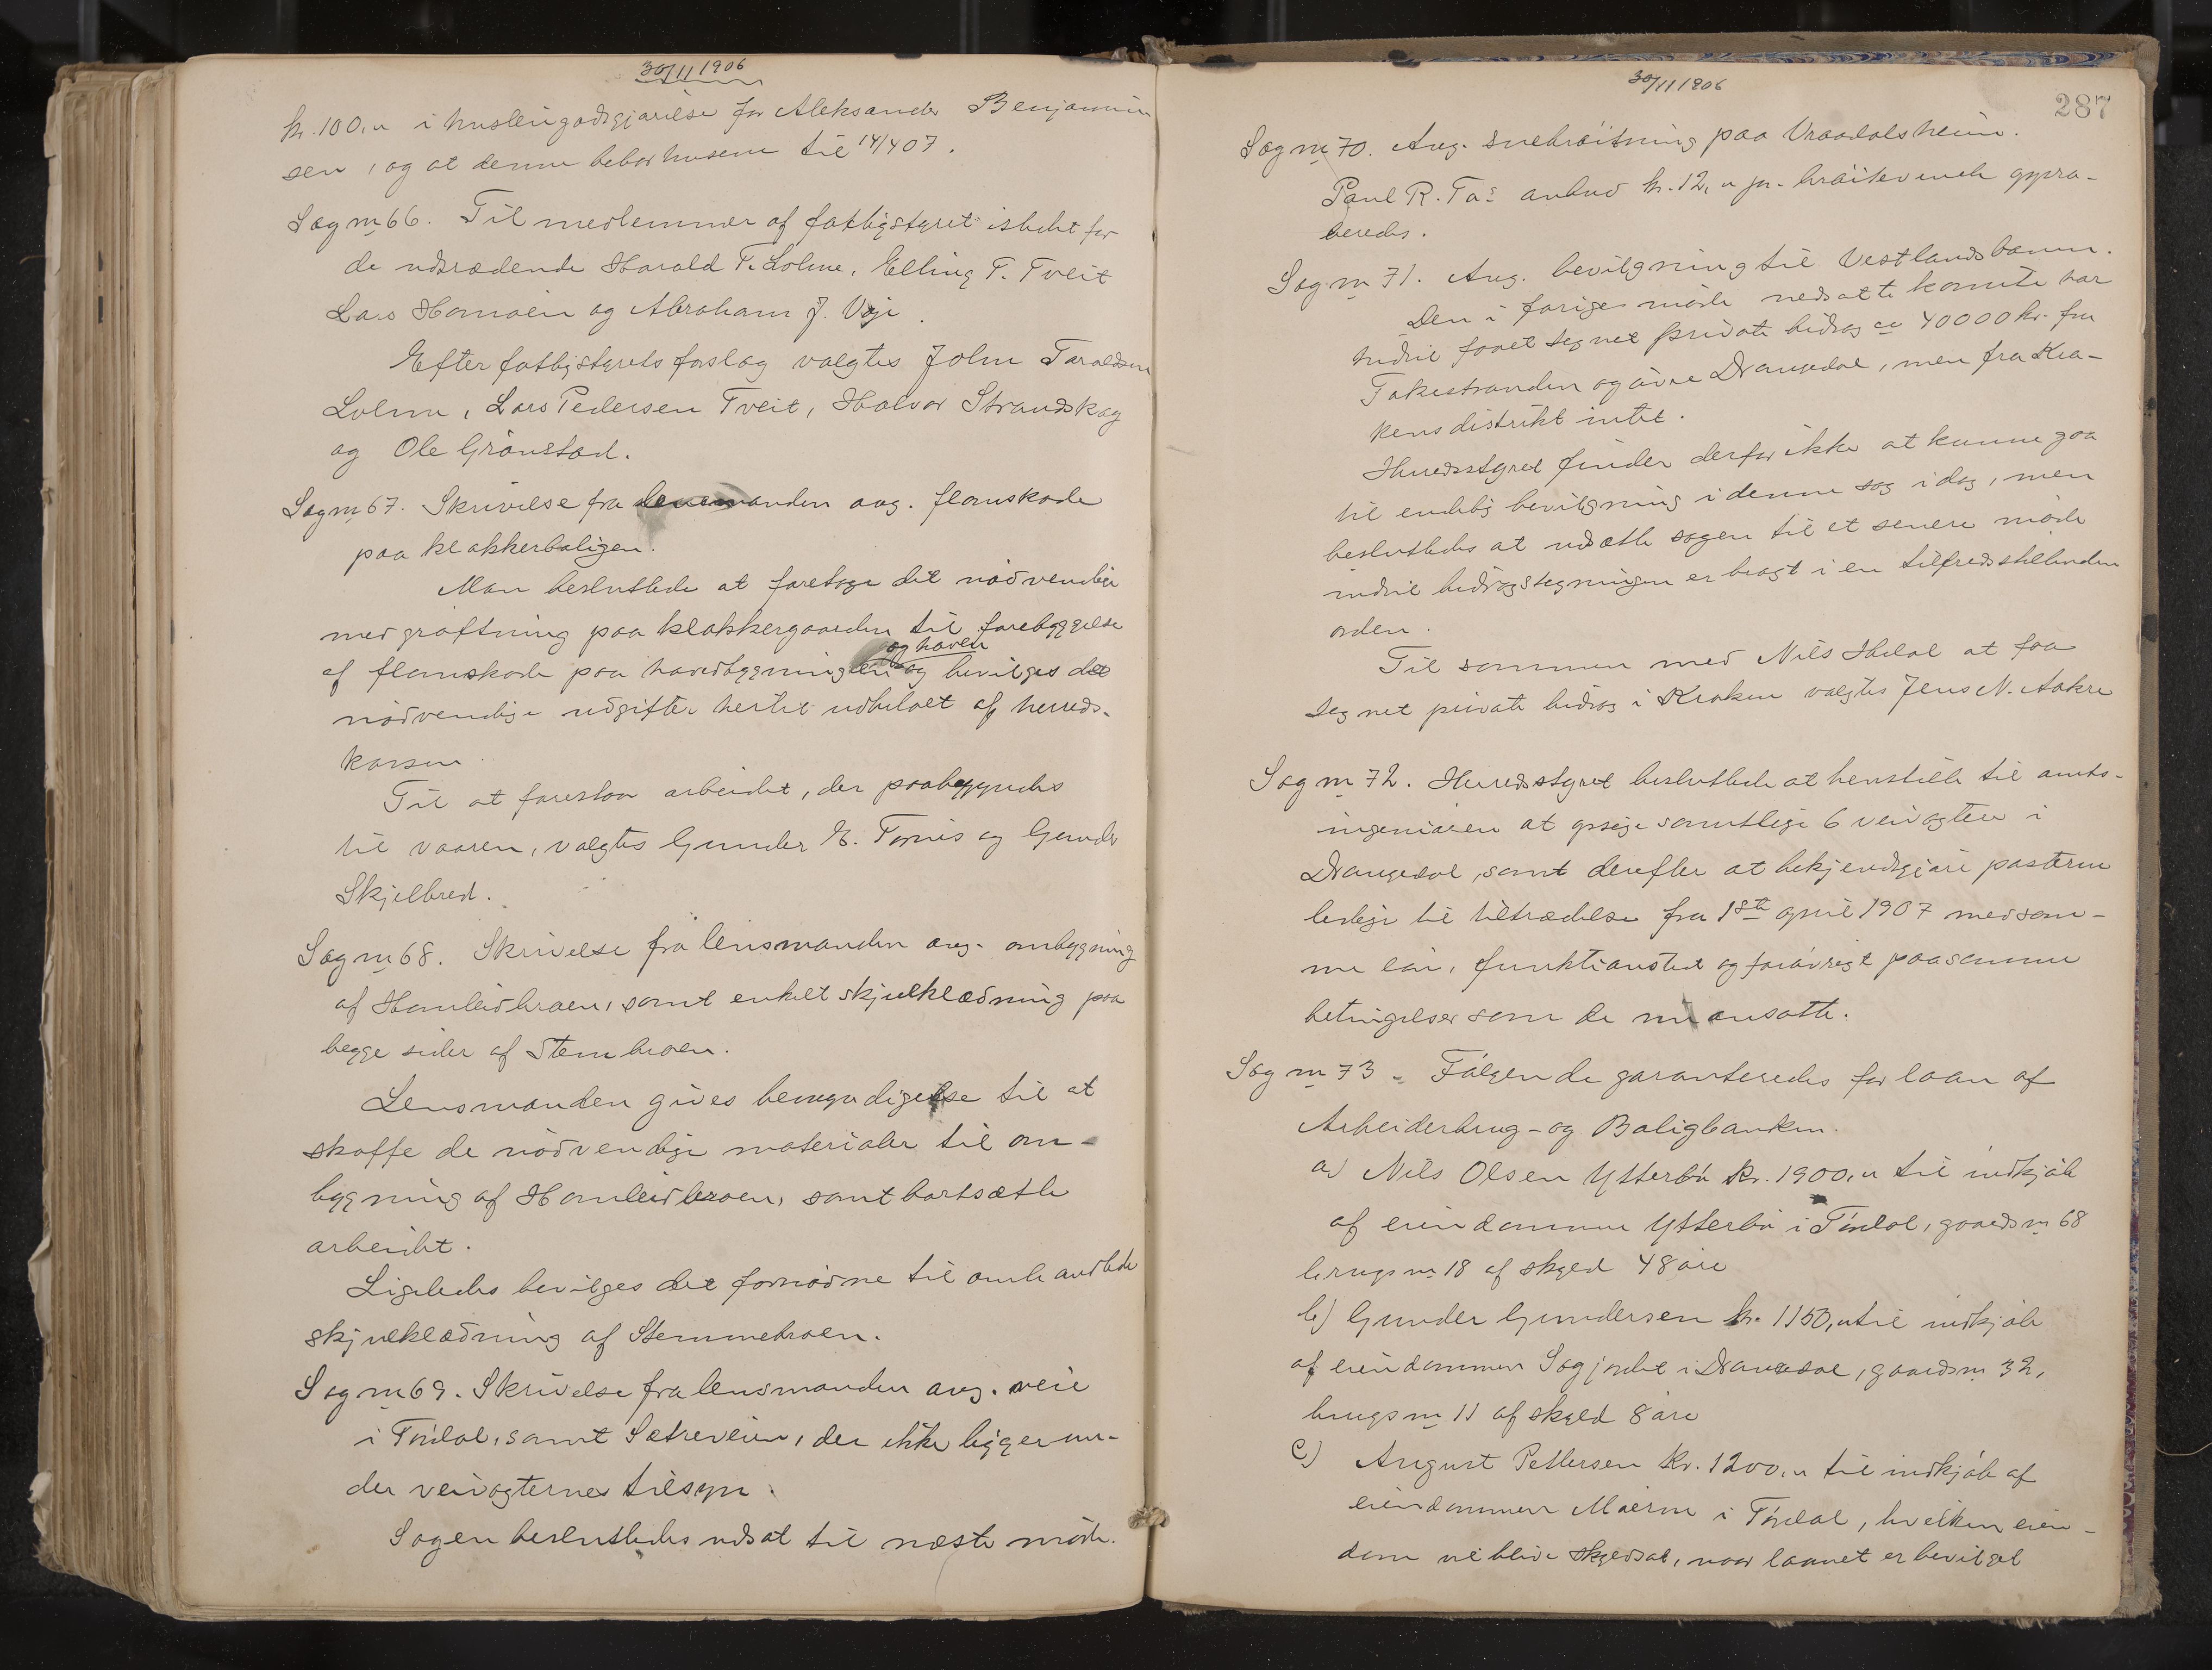 30/11 1906
kr. 100,00 i husleiegodtgjørelse for Aleksander Benjamin
sen, og at denne bebor husene til 14/4 07.
Sag nr 66. Til medlemmer af fattigstyret istedet for
de udtrædende Harald T. Lolme, Elling T. Tveit
Lars Homøen og Abraham J. Veje.
Efter fattigstyrets forslag valgtes John Taraldsen
Lolme, Lars Pedersen Tveit, Halvor Strandskog
og Ole Grønstad.
Sag nr 67. Skrivelse fra lensmanden ang. flomskade
paa klokkerboligen.
Man besluttede at foretage det nødvendige
med grøftning paa klokkergaarden til forebyggelse
og haven
af flomskade paa hovedbygningen og bevilges det
nødvendige udgifter hertil udbetalt af herreds-
kassen.
Til at forestaa arbeidet, der paabegyndes
til vaaren, valgtes Gunder E. Tornis og Gunder
Skjelbred.
Sag nr 68. Skrivelse fra lensmanden ang. ombygning
af Homleidbroen, samt enkelt skjulklædning paa
begge sider af Stembroen.
Lensmanden gives bemyndigelse til at
skaffe de nødvendige materialer til om-
bygning af Homleidbroen, samt bortsætte
arbeidet.
Ligeledes bevilges det fornødne til omhandlede
skjulklædning af Stemmebroen.
Sag nr 69. Skrivelse fra lensmanden ang. veie
i Tørdal, samt Sætreveien, der ikke ligger un-
der veivogternes tilsyn.
Sagen besluttedes udsat til næste møde.
30/11 1906
287
Sag nr 70. Ang. snebrøitning paa Vraadalsheien.
Paul R. Tos anbud kr. 12,00 pr. brøitevende appro-
beredes.
Sag nr 71. Ang. bevilgning til Vestlandsbanen.
Den i forige møde nedsatte komite har
indtil faaet tegnet private bidrag ca 40000 kr. fra
Tokestranden og øvre Drangedal, men fra Kro-
kens distrikt intet.
Herredsstyret finder derfor ikke at kunne gaa
til endelig bevilgning i denne sag i dag, men
besluttedes at udsætte sagen til et senere møde
indtil bidragstegningen er bragt i en tilfredsstillende
orden.
Til sammen med Nils Heldal at faa
tegnet private bidrag i Kroken valgtes Jens N. Aakre
Sag nr 72. Herredsstyret besluttede at henstille til amts-
ingeniøren at opsige samtlige 6 veivogtere i
Drangedal, samt derefter at bekjendtgjøre posterne
ledige til tiltrædelse fra 1ste april 1907 med sam-
me løn, funktionstid og forøvrigt paa samme
betingelser som de nu ansatte.
Sag nr 73. Følgende garanteredes for laan af
Arbeiderbrug- og Boligbanken.
a) Nils Olsen Ytterbø kr. 1900,00 til indkjøb
af eiendommen Ytterbø i Tørdal, gaards nr 68
brugs nr 18 af skyld 48 øre
b) Gunder Gundersen kr. 1150,00 til indkjøb
af eiendommen Sagjordet i Drangedal, gaards nr 32,
brugs nr 11 af skyld 8 øre
c) August Pettersen kr. 1200,00 til indkjøb af
eiendommen Moerne i Tørdal, hvilken eien-
dom vil blive skyldsat, naar laanet er bevilget